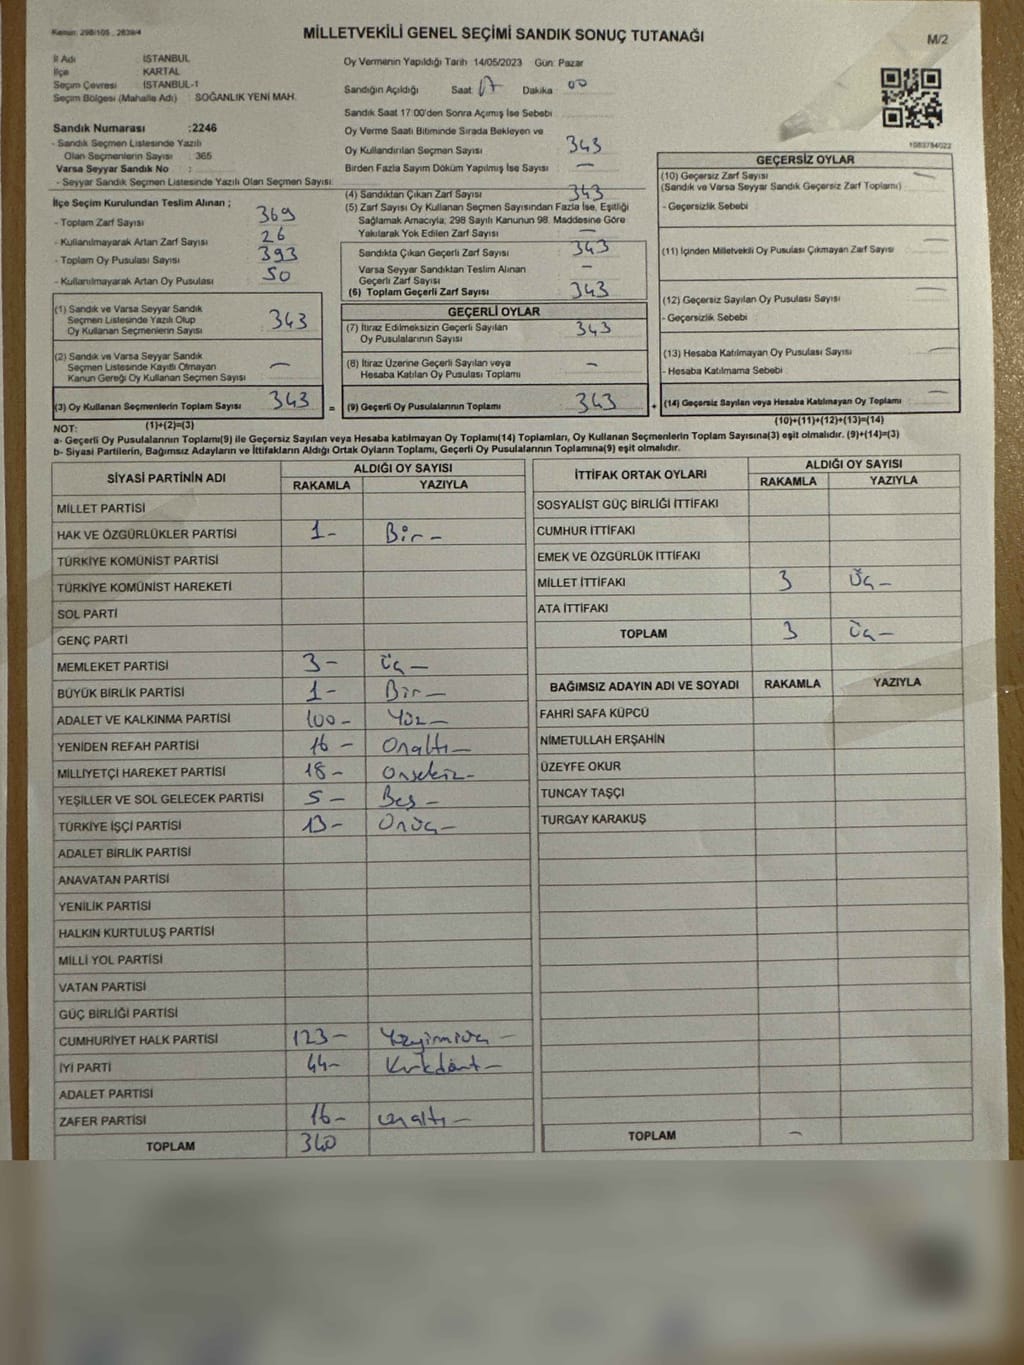 Kanun: 298/105 , 2839/4
MİLLETVEKİLİ GENEL SEÇİMİ SANDIK SONUÇ TUTANAĞI
M/2
İl Adı : İSTANBUL
İlçe : KARTAL
Seçim Çevresi : İSTANBUL-1
Seçim Bölgesi (Mahalle Adı) : SOĞANLIK YENİ MAH.
Sandık Numarası :2246
- Sandık Seçmen Listesinde Yazılı
Olan Seçmenlerin Sayısı : 365
Varsa Seyyar Sandık No :
- Seyyar Sandık Seçmen Listesinde Yazılı Olan Seçmen Sayısı:
İlçe Seçim Kurulundan Teslim Alınan ;
- Toplam Zarf Sayısı 369
- Kullanılmayarak Artan Zarf Sayısı 26
- Toplam Oy Pusulası Sayısı 393
- Kullanılmayarak Artan Oy Pusulası 50
(1) Sandık ve Varsa Seyyar Sandık
Seçmen Listesinde Yazılı Olup
Oy Kullanan Seçmenlerin Sayısı 343
(2) Sandık ve Varsa Seyyar Sandık
Seçmen Listesinde Kayıtlı Olmayan
Kanun Gereği Oy Kullanan Seçmen Sayısı —
(3) Oy Kullanan Seçmenlerin Toplam Sayısı 343
Oy Vermenin Yapıldığı Tarih :14/05/2023 Gün: Pazar
Sandığın Açıldığı Saat : 17 Dakika : 00
Sandık Saat 17:00'den Sonra Açılmış İse Sebebi :
Oy Verme Saati Bitiminde Sırada Bekleyen ve
Oy Kullandırılan Seçmen Sayısı : 343
Birden Fazla Sayım Döküm Yapılmış İse Sayısı : —
(4) Sandıktan Çıkan Zarf Sayısı 343
(5) Zarf Sayısı Oy Kullanan Seçmen Sayısından Fazla İse, Eşitliği
Sağlamak Amacıyla; 298 Sayılı Kanunun 98. Maddesine Göre
Yakılarak Yok Edilen Zarf Sayısı —
Sandıkta Çıkan Geçerli Zarf Sayısı 343
Varsa Seyyar Sandıktan Teslim Alınan
Geçerli Zarf Sayısı —
(6) Toplam Geçerli Zarf Sayısı 343
GEÇERLİ OYLAR
(7) İtiraz Edilmeksizin Geçerli Sayılan
Oy Pusulalarının Sayısı 343
(8) İtiraz Üzerine Geçerli Sayılan veya
Hesaba Katılan Oy Pusulası Toplamı —
= (9) Geçerli Oy Pusulalarının Toplamı 343 +
1083784022
GEÇERSİZ OYLAR
(10) Geçersiz Zarf Sayısı
(Sandık ve Varsa Seyyar Sandık Geçersiz Zarf Toplamı) —
- Geçersizlik Sebebi :
(11) İçinden Milletvekili Oy Pusulası Çıkmayan Zarf Sayısı —
(12) Geçersiz Sayılan Oy Pusulası Sayısı —
- Geçersizlik Sebebi :
(13) Hesaba Katılmayan Oy Pusulası Sayısı —
- Hesaba Katılmama Sebebi :
(14) Geçersiz Sayılan veya Hesaba Katılmayan Oy Toplamı —
NOT: (1)+(2)=(3) (10)+(11)+(12)+(13)=(14)
a- Geçerli Oy Pusulalarının Toplamı(9) ile Geçersiz Sayılan veya Hesaba katılmayan Oy Toplamı(14) Toplamları, Oy Kullanan Seçmenlerin Toplam Sayısına(3) eşit olmalıdır. (9)+(14)=(3)
b- Siyasi Partilerin, Bağımsız Adayların ve İttifakların Aldığı Ortak Oyların Toplamı, Geçerli Oy Pusulalarının Toplamına(9) eşit olmalıdır.
SİYASİ PARTİNİN ADI ALDIĞI OY SAYISI
RAKAMLA YAZIYLA
MİLLET PARTİSİ
HAK VE ÖZGÜRLÜKLER PARTİSİ 1- Bir-
TÜRKİYE KOMÜNİST PARTİSİ
TÜRKİYE KOMÜNİST HAREKETİ
SOL PARTİ
GENÇ PARTİ
MEMLEKET PARTİSİ 3- Üç-
BÜYÜK BİRLİK PARTİSİ 1- Bir-
ADALET VE KALKINMA PARTİSİ 100- Yüz-
YENİDEN REFAH PARTİSİ 16- Onaltı-
MİLLİYETÇİ HAREKET PARTİSİ 18- Onsekiz-
YEŞİLLER VE SOL GELECEK PARTİSİ 5- Beş-
TÜRKİYE İŞÇİ PARTİSİ 13- Onüç-
ADALET BİRLİK PARTİSİ
ANAVATAN PARTİSİ
YENİLİK PARTİSİ
HALKIN KURTULUŞ PARTİSİ
MİLLİ YOL PARTİSİ
VATAN PARTİSİ
GÜÇ BİRLİĞİ PARTİSİ
CUMHURİYET HALK PARTİSİ 123- Yüzyirmiüç-
İYİ PARTİ 44- Kırkdört-
ADALET PARTİSİ
ZAFER PARTİSİ 16- onaltı-
TOPLAM 340
İTTİFAK ORTAK OYLARI ALDIĞI OY SAYISI
RAKAMLA YAZIYLA
SOSYALİST GÜÇ BİRLİĞİ İTTİFAKI
CUMHUR İTTİFAKI
EMEK VE ÖZGÜRLÜK İTTİFAKI
MİLLET İTTİFAKI 3 Üç-
ATA İTTİFAKI
TOPLAM 3 Üç-
BAĞIMSIZ ADAYIN ADI VE SOYADI RAKAMLA YAZIYLA
FAHRİ SAFA KÜPCÜ
NİMETULLAH ERŞAHİN
ÜZEYFE OKUR
TUNCAY TAŞÇI
TURGAY KARAKUŞ
TOPLAM —